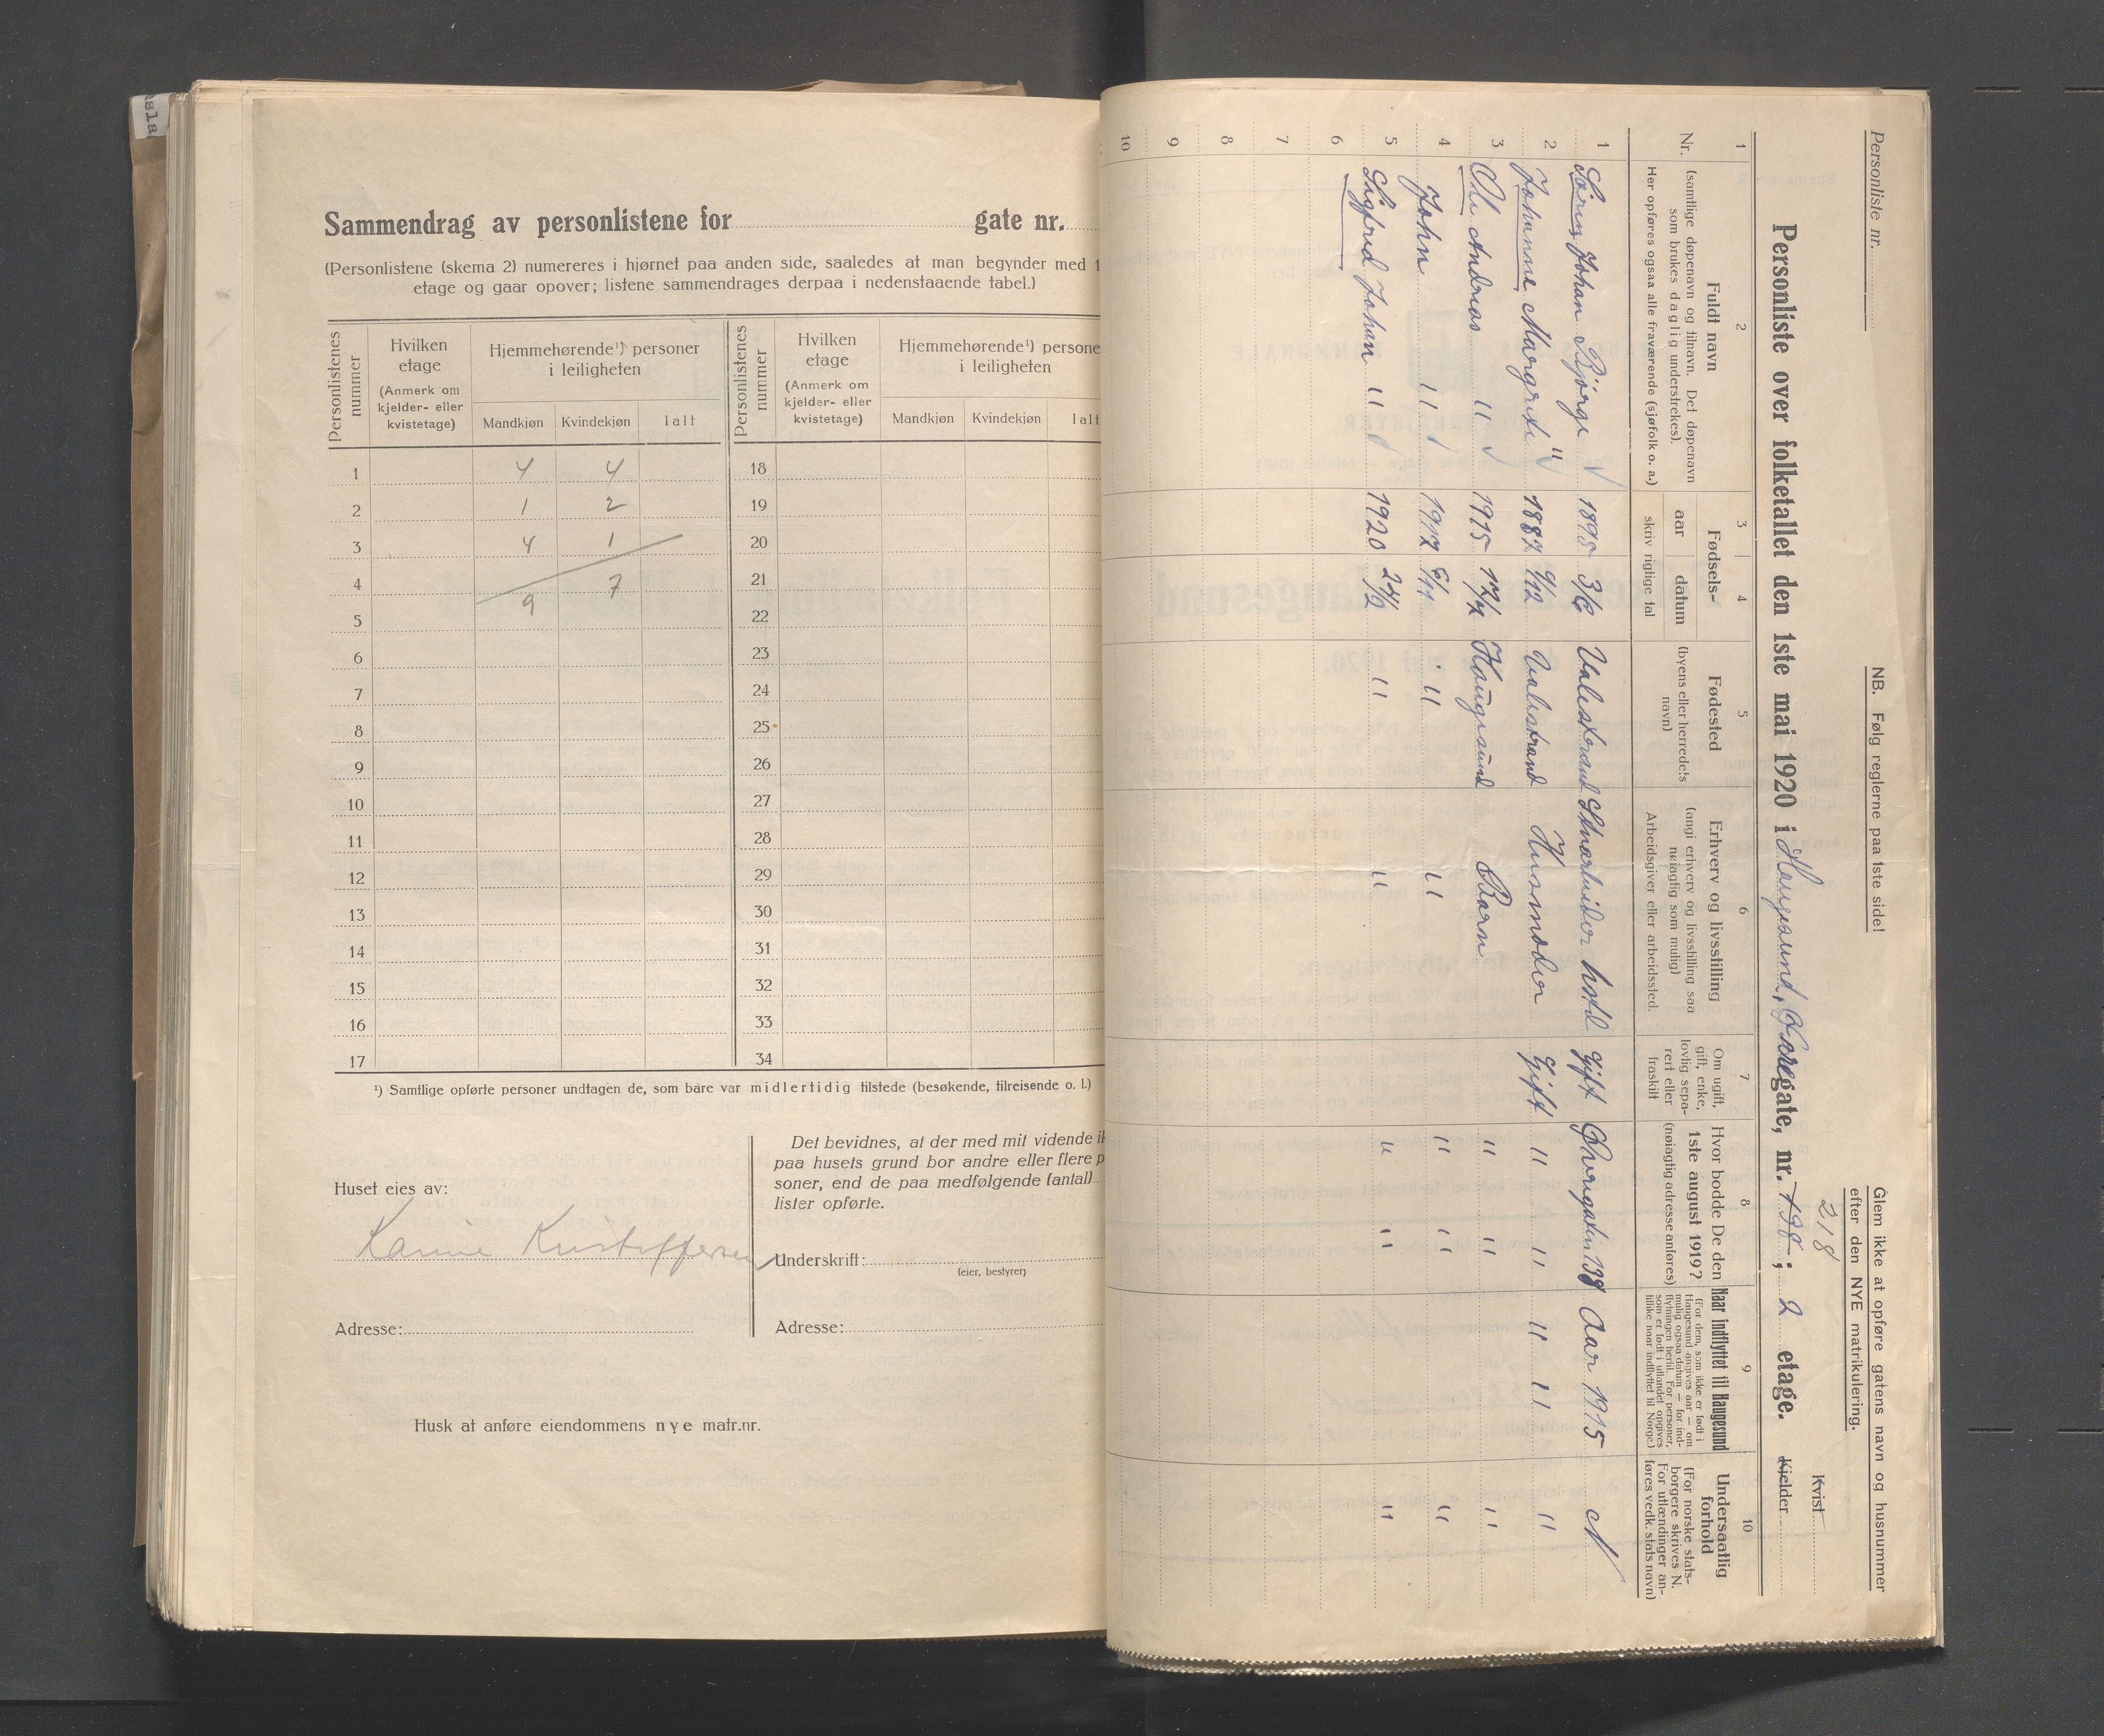 Sammendrag av personlistene for gate nr.
(Personlistene (skema 2) numereres i hjørnet paa anden side, saaledes at man begynder med 1
etage og gaar opover; listene sammendrages derpaa i nedenstaaende tabel.)
Personlistenes nummer
Hvilken etage
(Anmerk om kjelder- eller kvistetage)
Hjemmehørende¹) personer i leiligheten
Mandkjøn Kvindekjøn Ialt
Personlistenes nummer
Hvilken etage
(Anmerk om kjelder- eller kvistetage)
Hjemmehørende¹) persone
i leiligheten
Mandkjøn Kvindekjøn Ialt
1 4 4 18
2 1 2 19
3 4 1 20
4 9 7 21
5 22
6 23
7 24
8 25
9 26
10 27
11 28
12 29
13 30
14 31
15 32
16 33
17 34
¹) Samtlige opførte personer undtagen de, som bare var midlertidig tilstede (besøkende, tilreisende o. l.)
Huset eies av:
Karine Kristoffersen
Adresse:
Det bevidnes, at der med mit vidende ik
paa husets grund bor andre eller flere p
soner, end de paa medfølgende (antal)
lister opførte.
Underskrift:
(eier, bestyrer)
Adresse:
Husk at anføre eiendommens nye matr.nr.
Personliste nr.
NB. Følg reglerne paa 1ste side!
Glem ikke at opføre gatens navn og husnummer
efter den NYE matrikulering.
218
Kvist
Personliste over folketallet den 1ste mai 1920 i Haugesund, gate, nr. 198; 2 etage. Kjelder
1 2 3 4 5 6 7 8 9 10
Nr.
Fuldt navn
(samtlige døpenavn og tilnavn. Det døpenavn
som brukes daglig understrekes).
Her opføres ogsaa alle fraværende (sjøfolk o. a.)
Fødsels-
aar datum
skriv rigtige tal
Fødested
(byens eller herredets
navn)
Erhverv og livsstilling
(angi erhverv og livsstilling saa
nøiagtig som mulig)
Arbeidsgiver eller arbeidssted.
Om ugift,
gift, enke,
lovlig sepa-
rert eller
fraskilt
Hvor bodde De den
1ste august 1919?
(nøiagtig adresse anføres)
Naar indflyttet til Haugesund
(For dem, som ikke er født i
Haugesund angives aar — om
mulig ogsaa datum — for ind-
flytningen hertil. For personer,
som er født i utlandet opgives
tillike naar indflyttet til Norge.)
Undersaatlig
forhold
(For norske stats-
borgere skrives N.
For utlændinger an-
føres vedk. stats navn)
1 Sören Johan Bjørge 1895 3/6 Valestrand gift 138 Aar 1915 N
2 Johanne Margrete " 1887 9/12 Valestrand Husmoder Gift " " " " "
3 Ole Andreas " 1915 17/7 Haugesund Barn " " "
4 John " 1917 " " " " "
5 Sigfred Johan " 1920 24/2 " " " " "
6
7
8
9
10